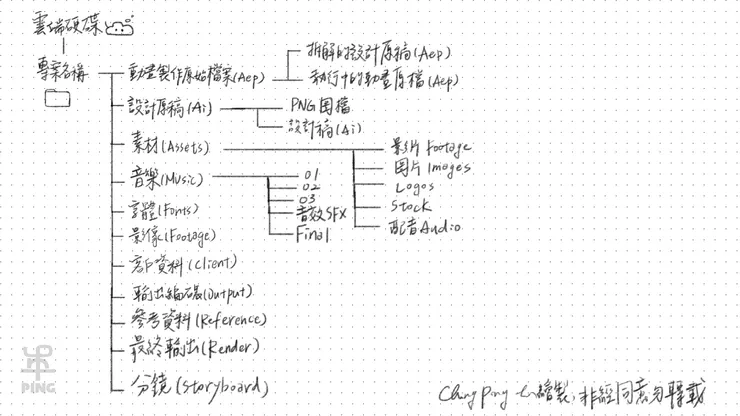 雲端硬碟
專案名稱
動畫製作原始檔案(Aep)
拆解的設計原稿(Aep)
執行中的動畫原檔(Aep)
設計原稿(Ai)
PNG圖檔
設計稿(Ai)
素材(Assets)
影片 Footage
圖片 Images
Logos
Stock
配音 Audio
音樂(Music)
01
02
03
音效SFX
Final
字體(Fonts)
影像(Footage)
客戶資料(Client)
輸出編碼(Output)
參考資料(Reference)
最終輸出(Render)
分鏡(Storyboard)
PING
Chung Ping 繪製，非經同意勿轉載